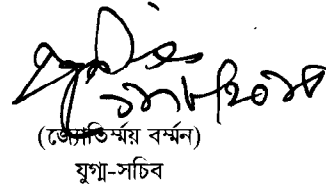 (জ্যোতির্ম্ময় বর্ম্মন)
যুগ্ম-সচিব